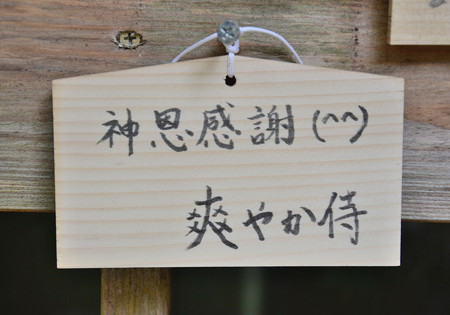 神恩感謝(^^)
爽やか侍